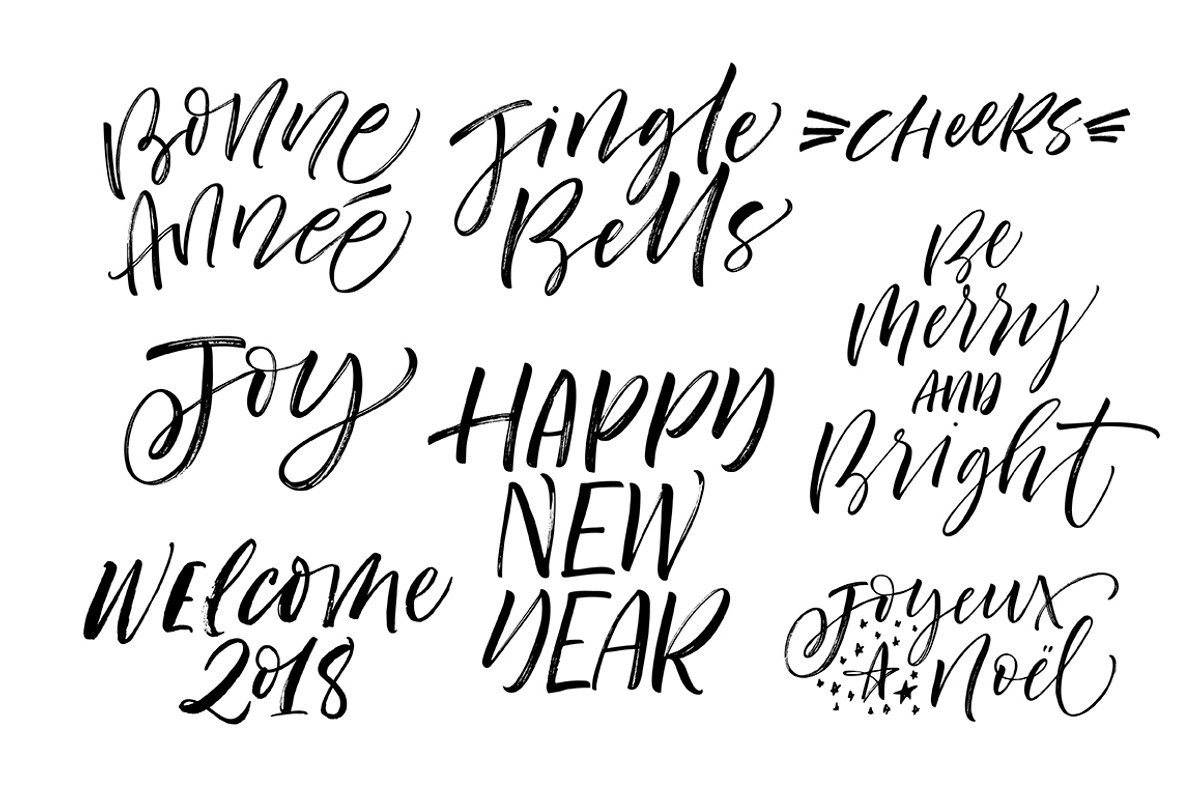 Bonne
Anneé
Jingle
Bells
CHeeRS
Be
merry
AND
Bright
Joy
HAPPY
NEW
YEAR
Welcome
2018
Joyeux
Noël